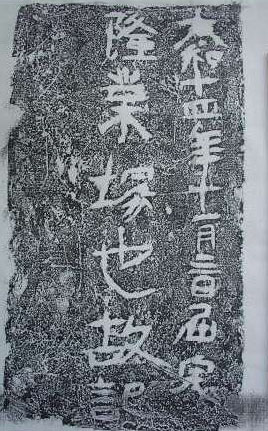 太和十四年十一月三日屈突
隆業塚也故記